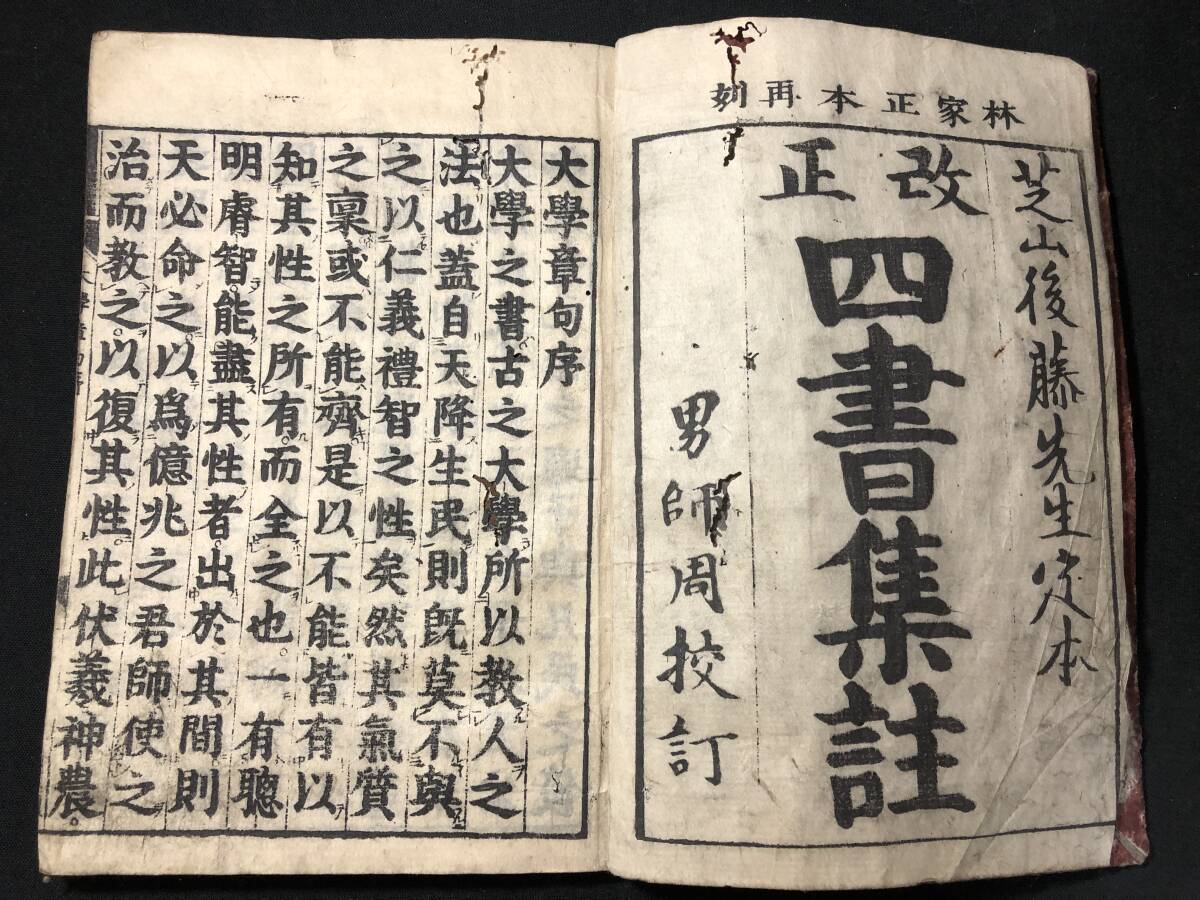 林家正本再刻
芝山後藤先生定本
改正
四書集註
男師周挍訂
大學章句序
大學之書古之大學所以教人之
法也蓋自天降生民則旣莫不與
之以仁義禮智之性矣然其氣質
之稟或不能齊是以不能皆有以
知其性之所有而全之也一有聰
明睿智能盡其性者出於其間則
天必命之以爲億兆之君師使之
治而教之以復其性此伏羲神農